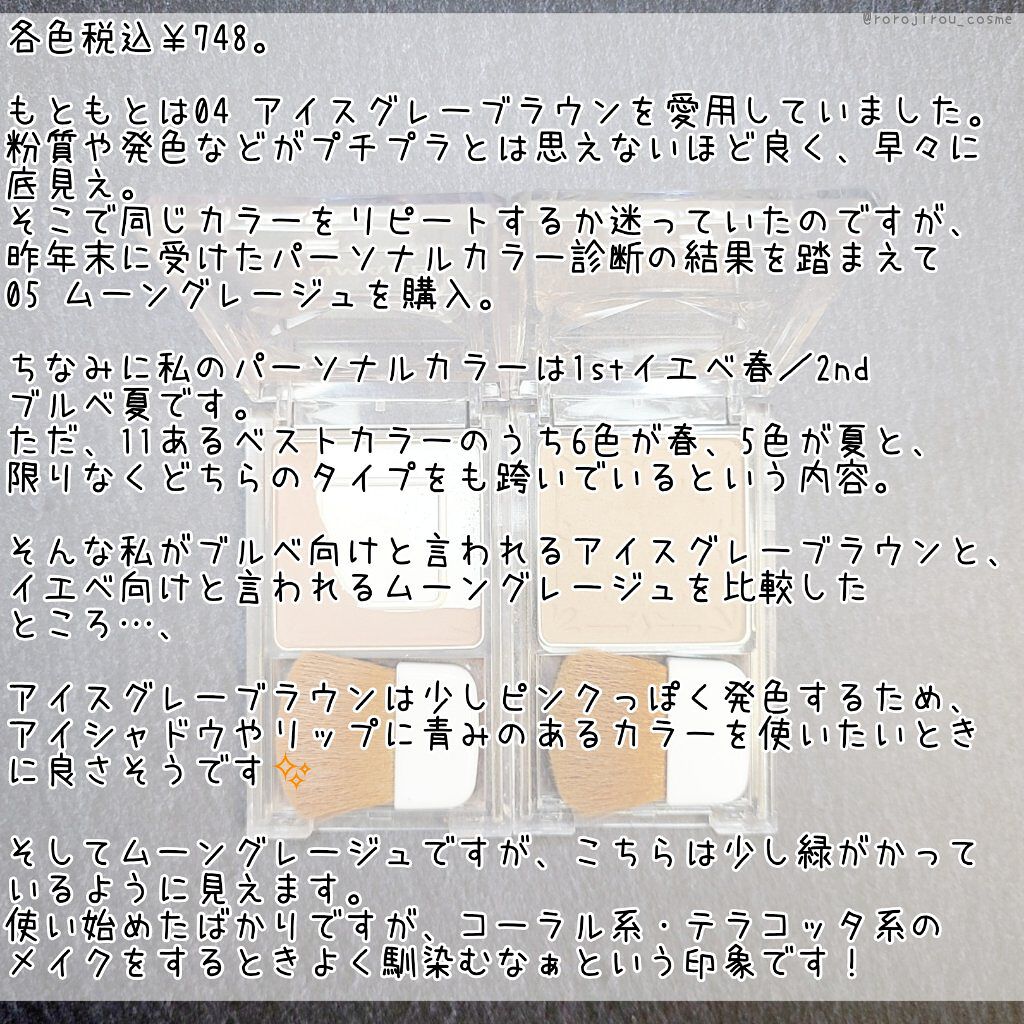 @rorojirou_cosme
各色税込￥748。
もともとは04 アイスグレーブラウンを愛用していました。
粉質や発色などがプチプラとは思えないほど良く、早々に
底見え。
そこで同じカラーをリピートするか迷っていたのですが、
昨年末に受けたパーソナルカラー診断の結果を踏まえて
05 ムーングレージュを購入。
ちなみに私のパーソナルカラーは1stイエベ春／2nd
ブルベ夏です。
ただ、11あるベストカラーのうち6色が春、5色が夏と、
限りなくどちらのタイプをも跨いでいるという内容。
そんな私がブルベ向けと言われるアイスグレーブラウンと、
イエベ向けと言われるムーングレージュを比較した
ところ…、
アイスグレーブラウンは少しピンクっぽく発色するため、
アイシャドウやリップに青みのあるカラーを使いたいとき
に良さそうです✨
そしてムーングレージュですが、こちらは少し緑がかって
いるように見えます。
使い始めたばかりですが、コーラル系・テラコッタ系の
メイクをするときよく馴染むなぁという印象です！